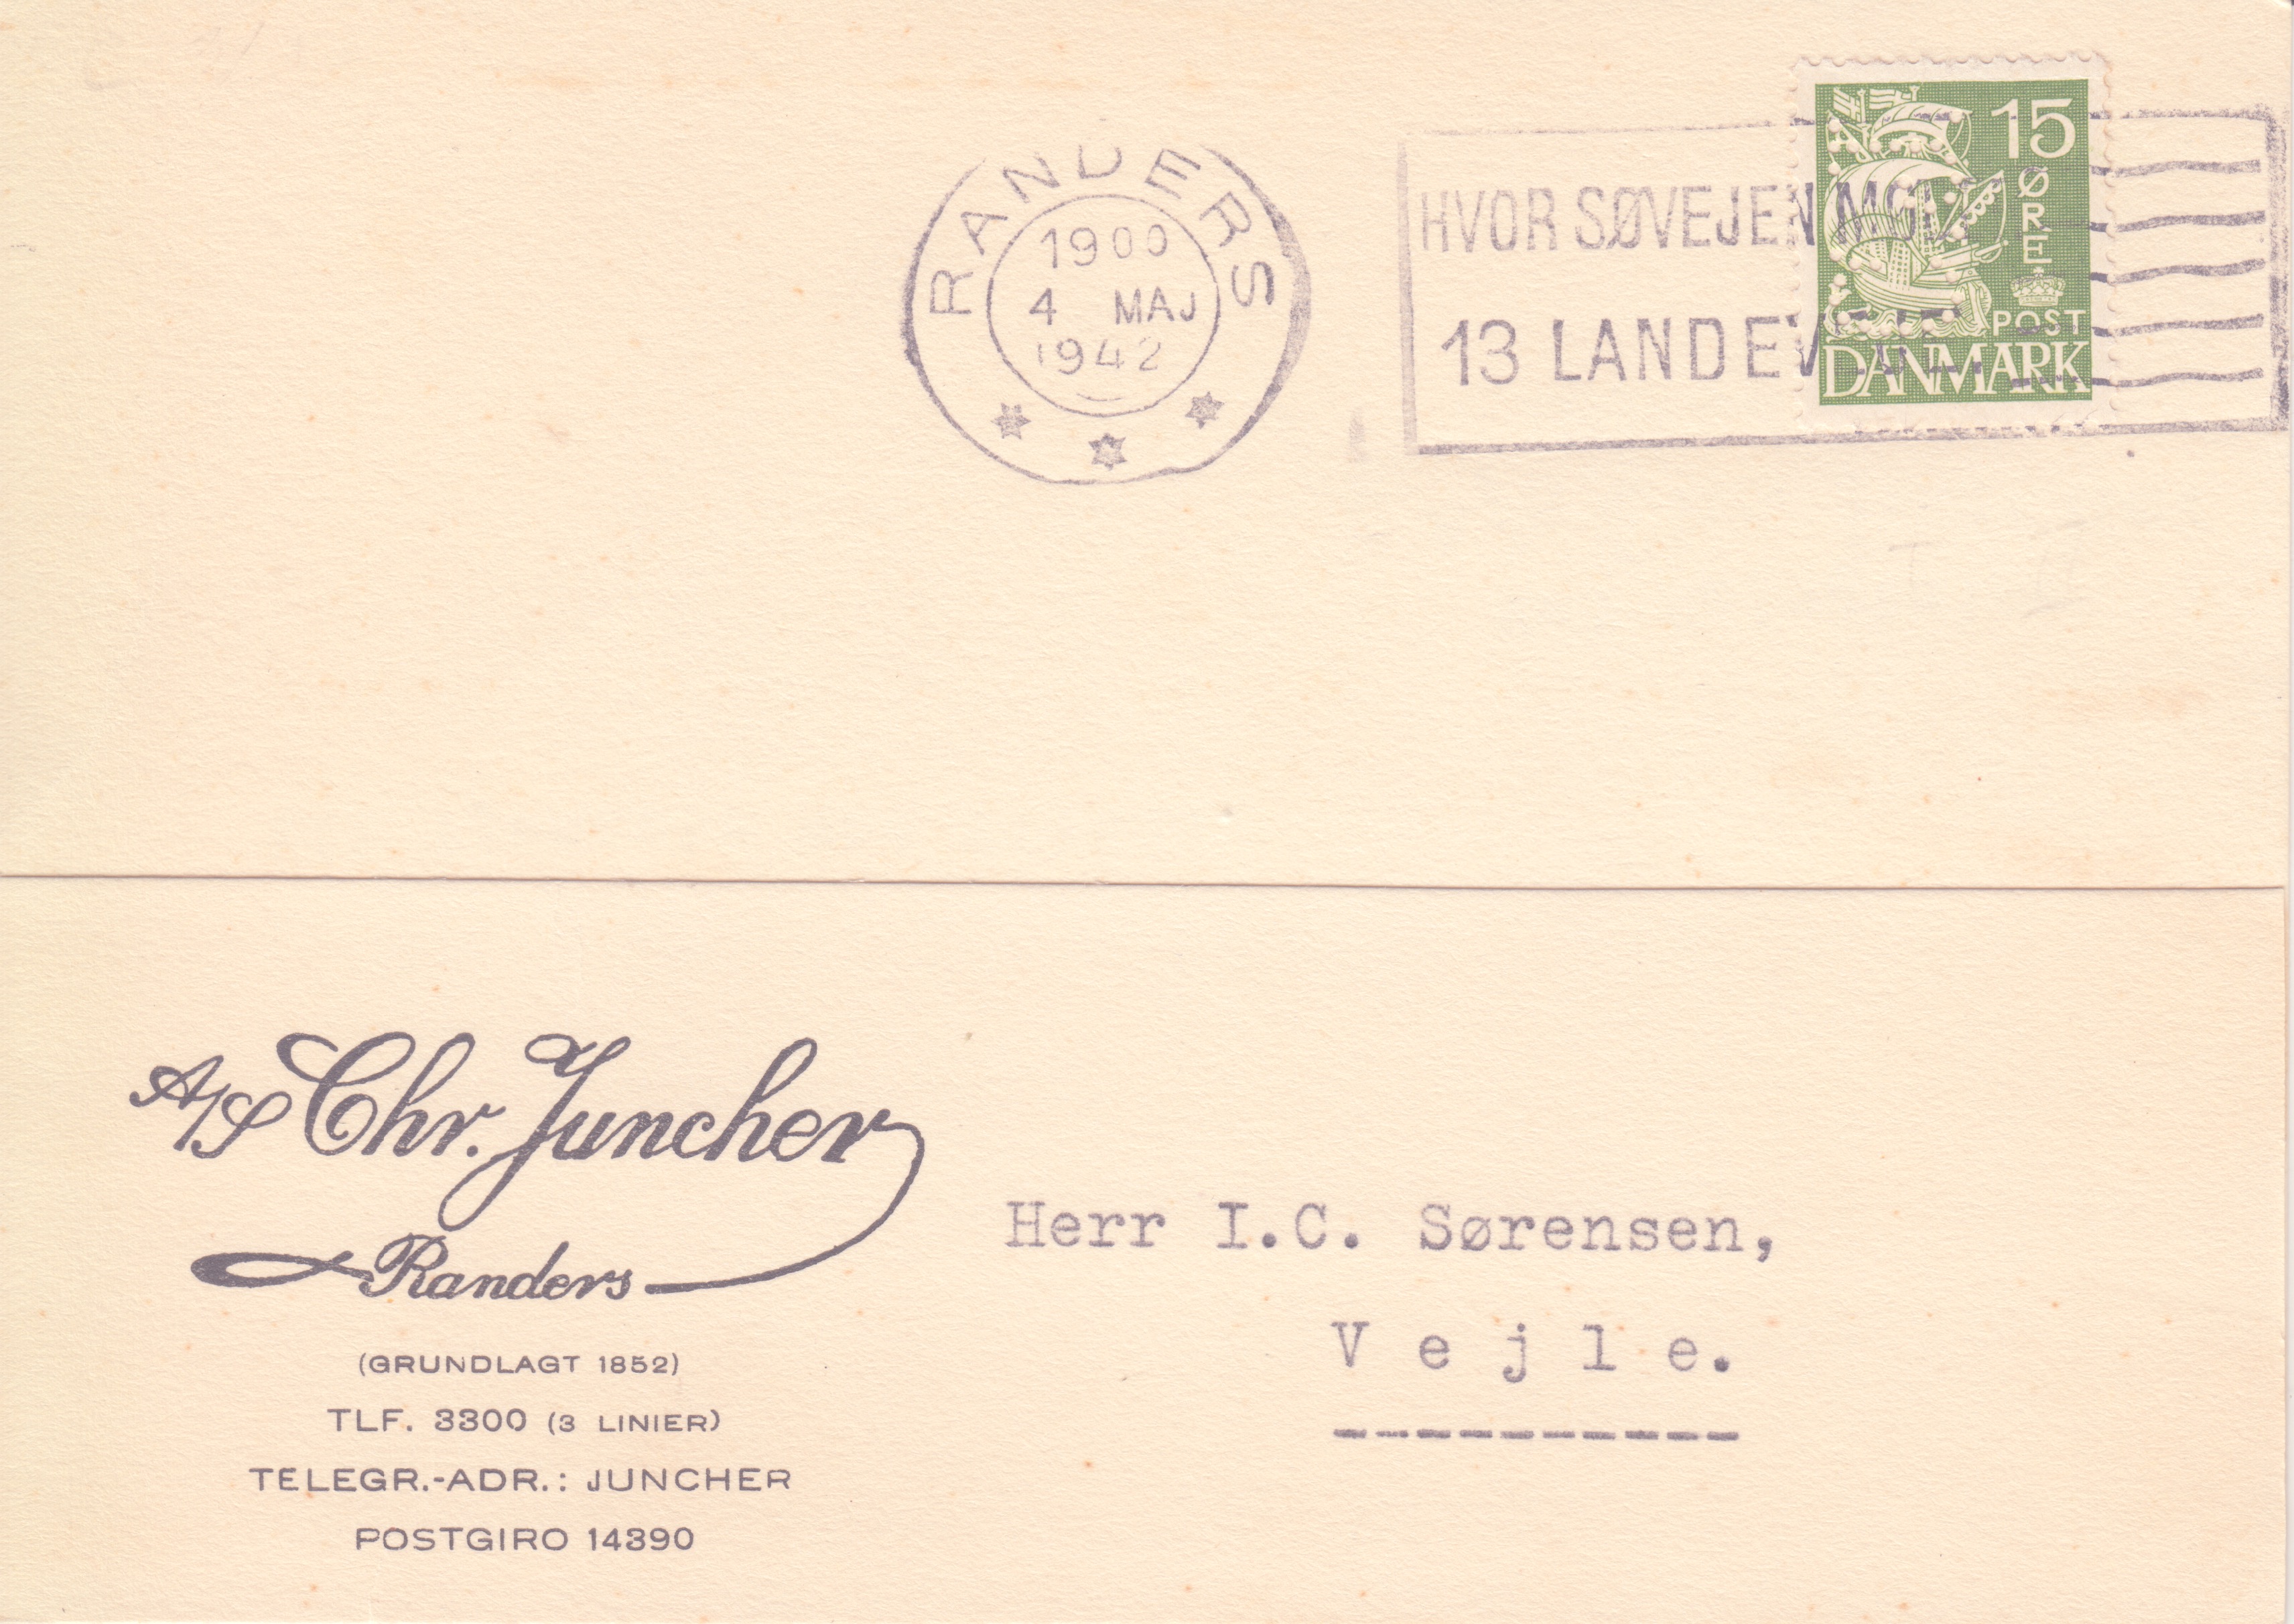 RANDERS
1900
4 MAJ
1942
HVOR SØVEJEN
13 LANDEV
15
ØRE
POST
DANMARK
A/S Chr. Juncher
Randers
(GRUNDLAGT 1852)
TLF. 3300 (3 LINIER)
TELEGR.-ADR.: JUNCHER
POSTGIRO 14390
Herr I.C. Sørensen,
Vejle.